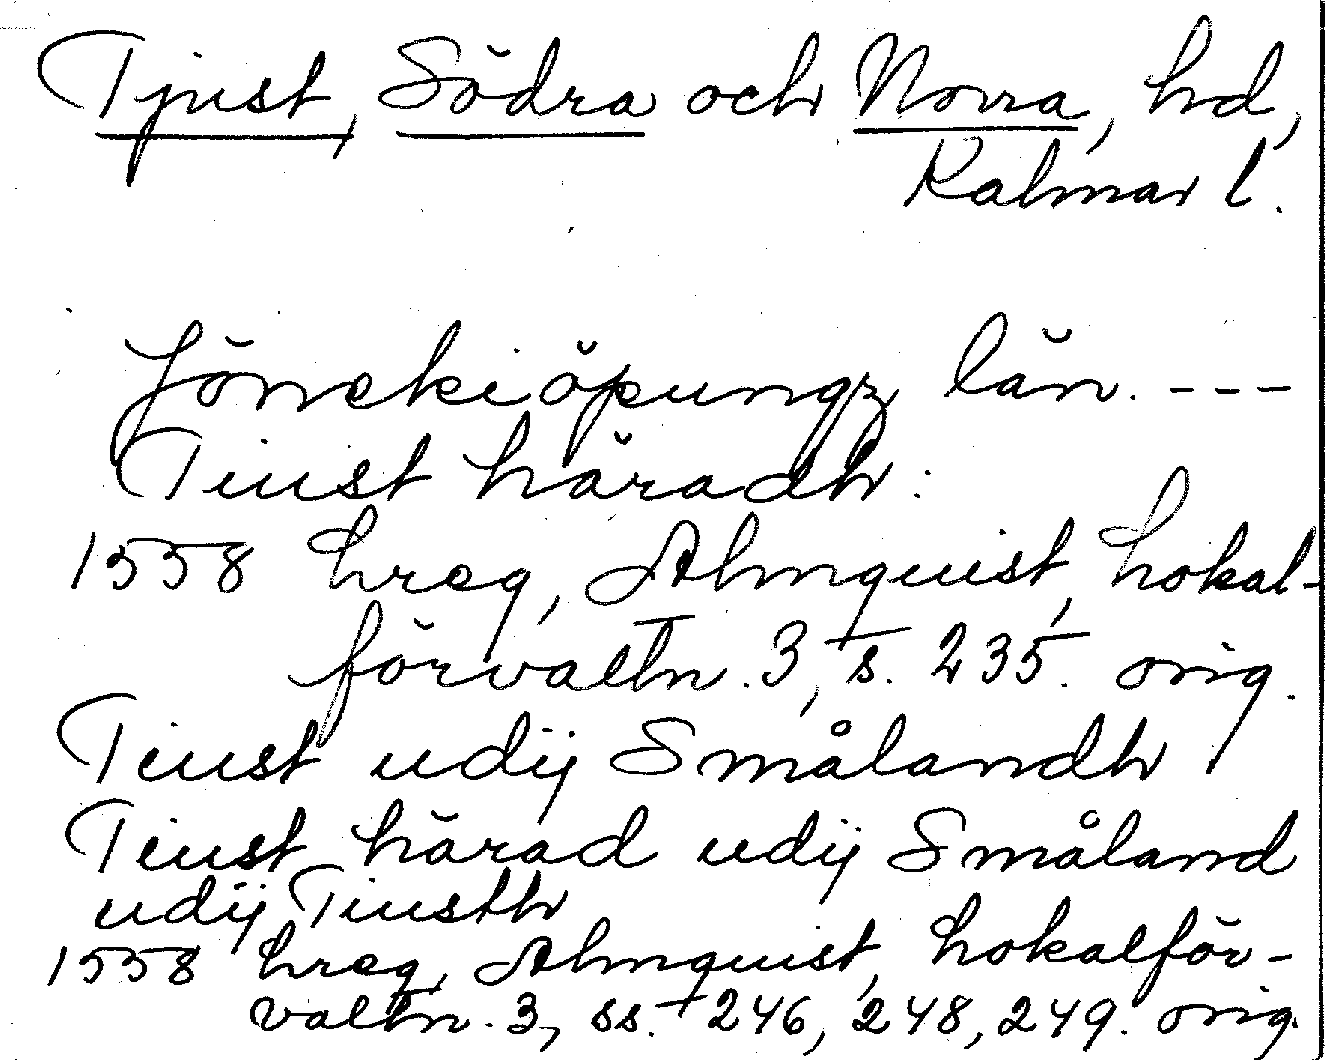 Tjust, Södra och Norra, hd,
Kalmar l.
Jönekiöpungz län. ---
Tiust häradh:
1558 hreg, Almquist, Lokal-
förvaltn. 3, s. 235. orig.
Tiust udij Smålandh
Tiust härad udij Småland
udij Tiusth
1558 hreg, Almquist, Lokalför-
valtn. 3, ss. 246, 248, 249. orig.